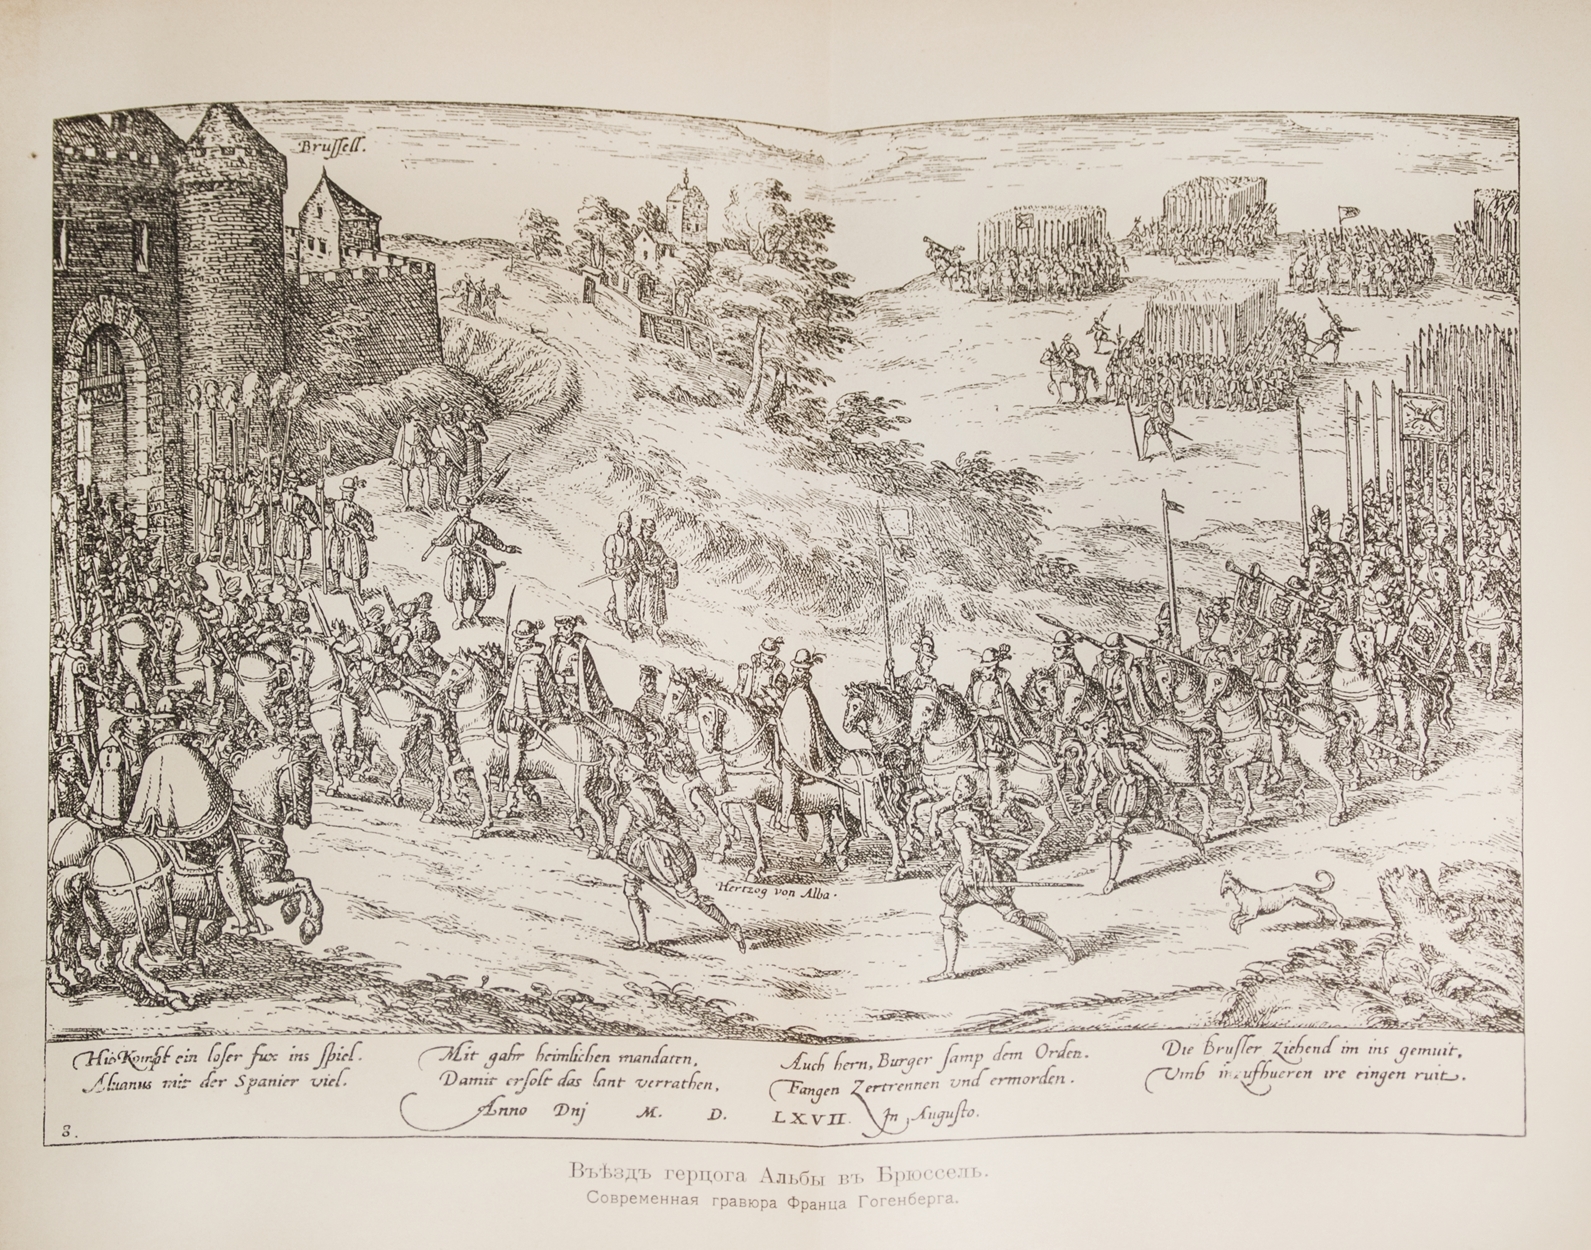 Brussell.
Hertzog von Alba.
Hie Kompt ein loser fux ins spiel.
Albanus mit der Spanier viel.
Mit gahr heimlichen mandaten,
Damit er solt das lant verrathen,
Auch hern, Burger samp dem Orden.
Fangen Zertrennen vnd ermorden.
Die Brusler Ziehend im ins gemuit,
Vmb ire eingen ruit.
Anno Dnj M. D. LXVII. Jn Augusto.
8.
Въѣздъ герцога Альбы въ Брюссель.
Современная гравюра Франца Гогенберга.